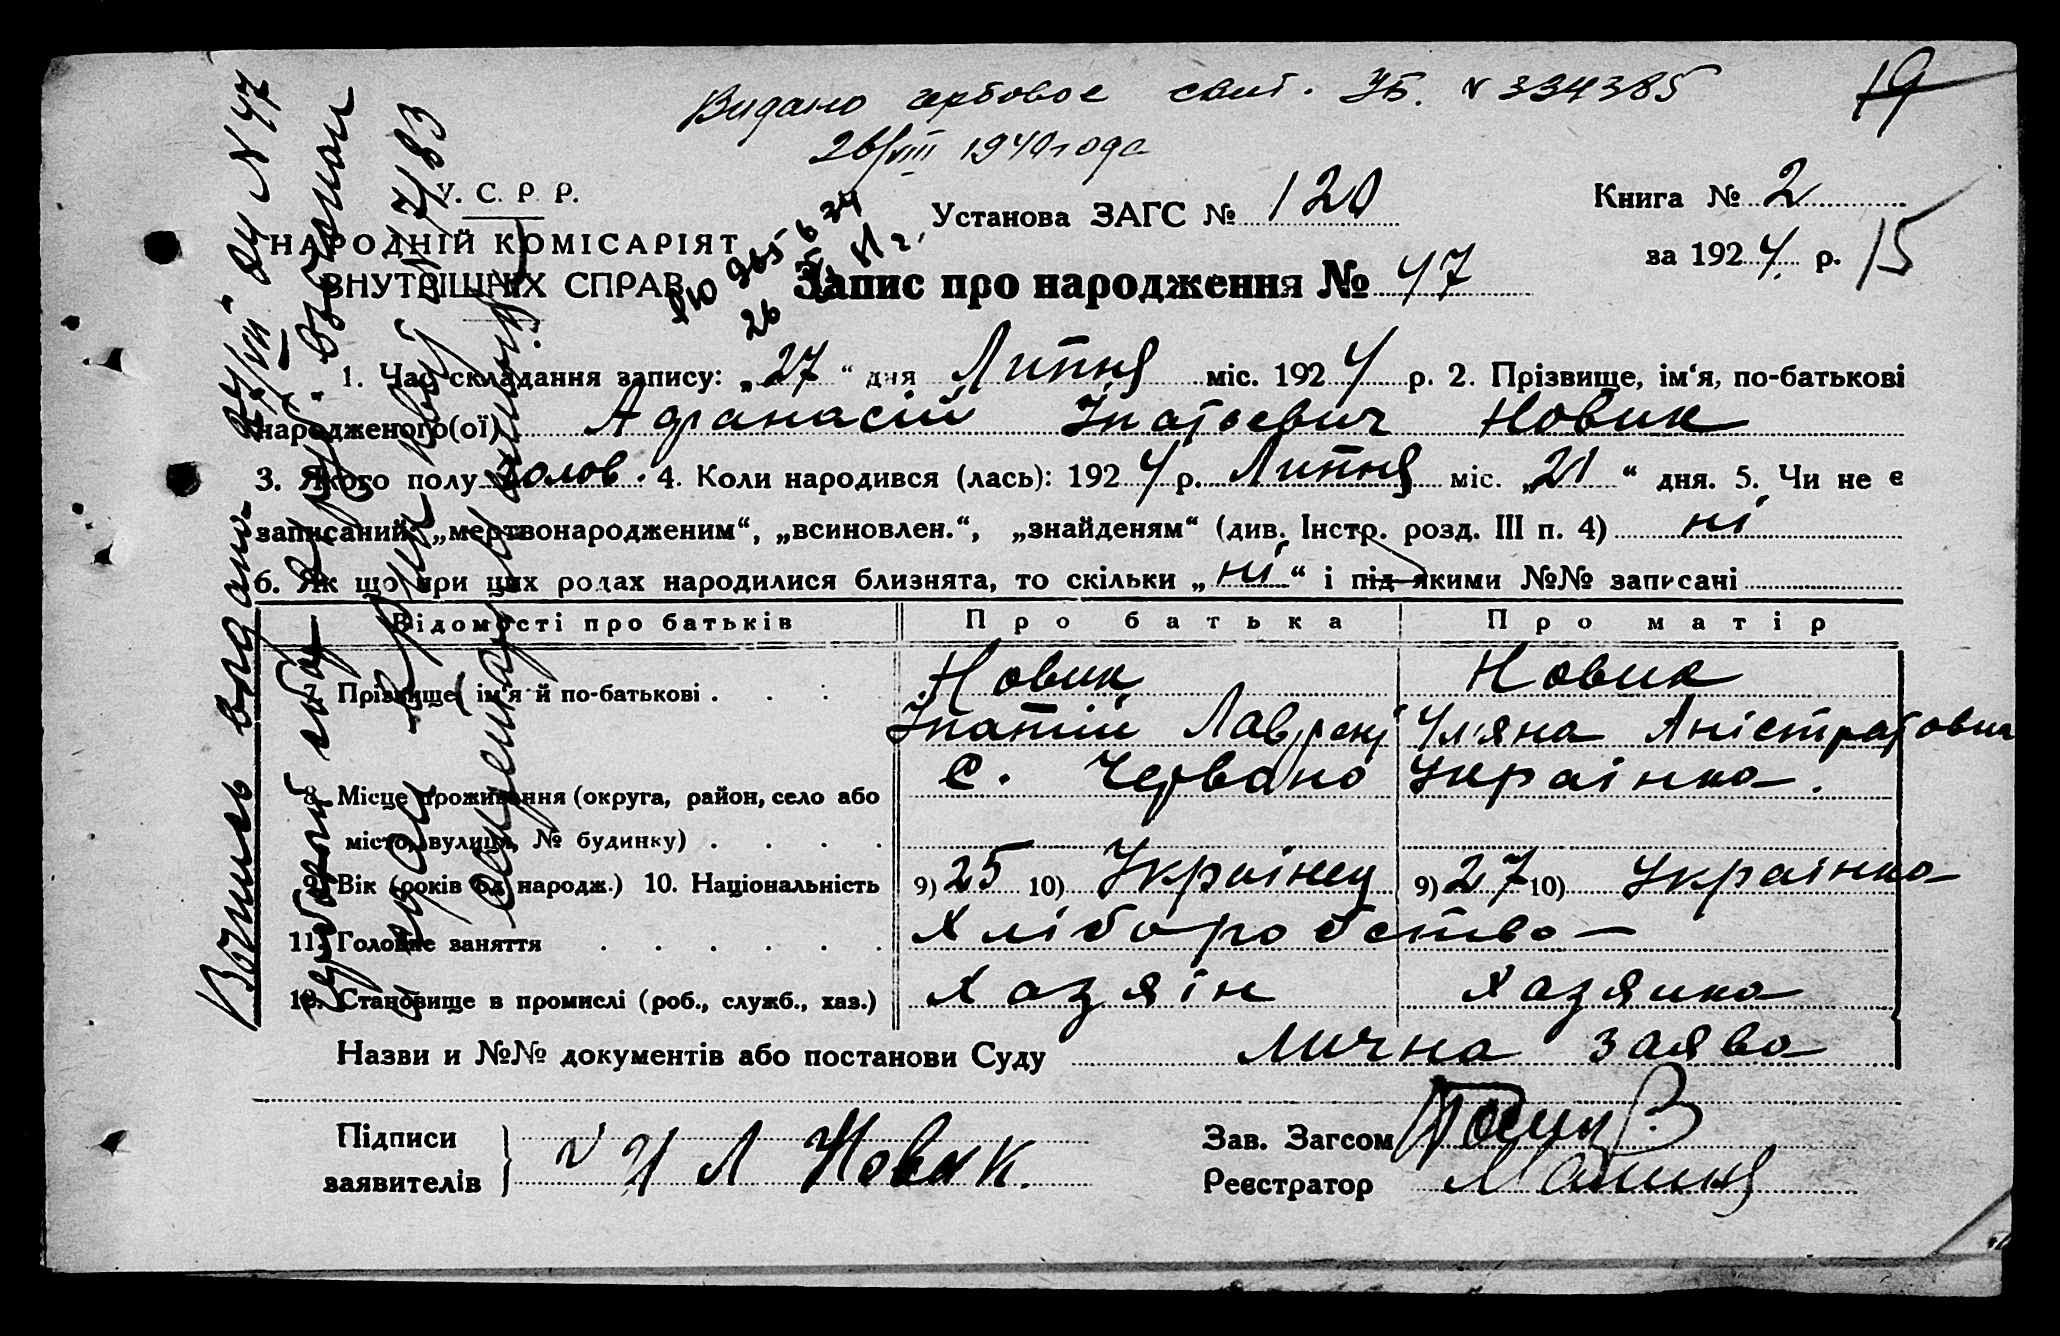 Видано гербовое свид. УБ. N 334385
19
26/VIII 1940 года
У. С. Р. Р.
НАРОДНІЙ КОМІСАРІЯТ
ВНУТРІШНІХ СПРАВ
Установа ЗАГС № 120
Книга № 2
за 1924 р. 15
Запис про народження № 47
1. Час складання запису: „27“ дня Липня міс. 1924 р. 2. Прізвище, ім‘я, по-батькові
народженого(ої) Афанасій Іпатьевич Новик
3. Якого полу Чолов. 4. Коли народився (лась): 1924 р. Липня міс. „21“ дня. 5. Чи не є
записаний: „мертвонародженим“, „всиновлен.“, „знайденям“ (див. Інстр. розд. III п. 4) ні
6. Як що при цих родах народилися близнята, то скільки „ні“ і під якими №№ записані
Відомості про батьків Про батька Про матір
7. Прізвище, ім‘я й по-батькові Новик Новик
Іпатій Лаврент Ул‘яна Аністратовна
8. Місце проживання (округа, район, село або С. Червано Українка.
місто, вулиця, № будинку)
9. Вік (років од народж.) 10. Національність 9) 25 10) Українец 9) 27 10) Українка
11. Головне заняття Хліборобство
12. Становище в промислі (роб., служб., хаз.) Хазяін Хазяика
Назви и №№ документів або постанови Суду Лична заява
Підписи
заявителів И Л Новик.
Зав. Загсом
Реєстратор